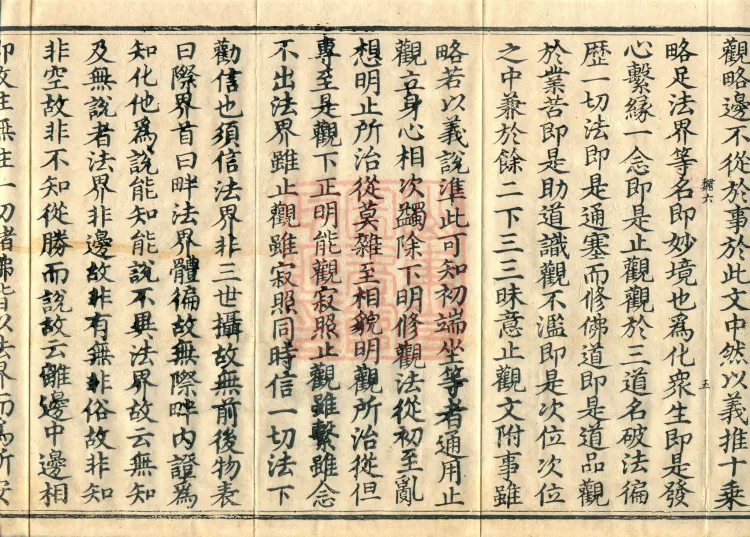 觀略邊不從於事於此文中然以義推十乗
略足法界等名即妙境也爲化衆生即是發
心繫縁一念即是止觀觀於三道名破法徧
歴一切法即是通塞而修佛道即是道品觀
於業苦即是助道識觀不濫即是次位次位
之中兼於餘二下三三昧意止觀文附事雖
略若以義說準此可知初端坐等者通用止
觀立身心相次蠲除下明修觀法從初至亂
想明止所治從莫雜至相貌明觀所治從但
專至是觀下正明能觀寂照止觀雖繫雖念
不出法界雖止觀雖寂照同時信一切法下
勸信也須信法界非三世攝故無前後物表
曰際界首曰畔法界體徧故無際畔内證爲
知化他爲說能知能說不異法界故云無知
及無說者法界非邊故非有無非俗故非知
非空故非不知從勝而說故云離邊中邊相
即故住無住一切諸佛皆以法界而爲所安
縮六
五